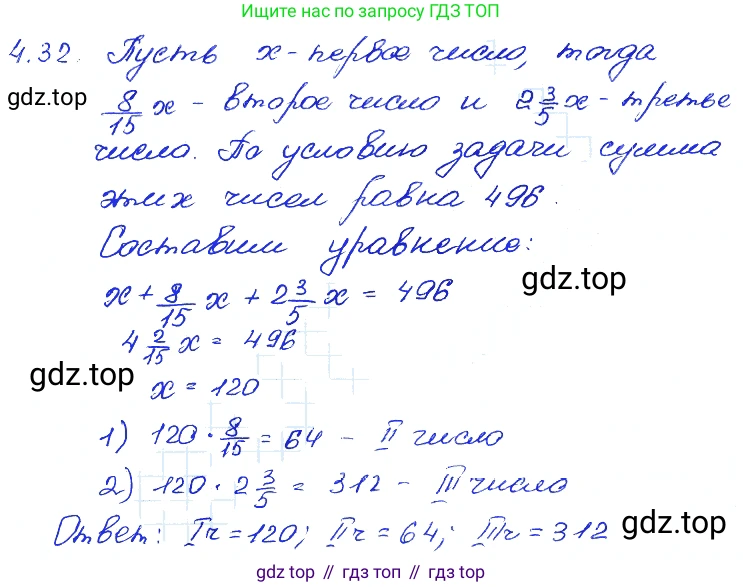 Ищите нас по запросу ГДЗ ТОП
4.32. Пусть x - первое число, тогда
gdz.top
8/15 x - второе число и 2 3/5 x - третье
числа. По условию задачи сумма
этих чисел равна 496.
Составим уравнение:
gdz.top
x + 8/15 x + 2 3/5 x = 496
4 2/15 x = 496
gdz.top
x = 120
1) 120 · 8/15 = 64 - II число
2) 120 · 2 3/5 = 312 - III число
Ответ: Iч = 120; IIч = 64; IIIч = 312
gdz.top
gdz.top // гдз топ // gdz.top